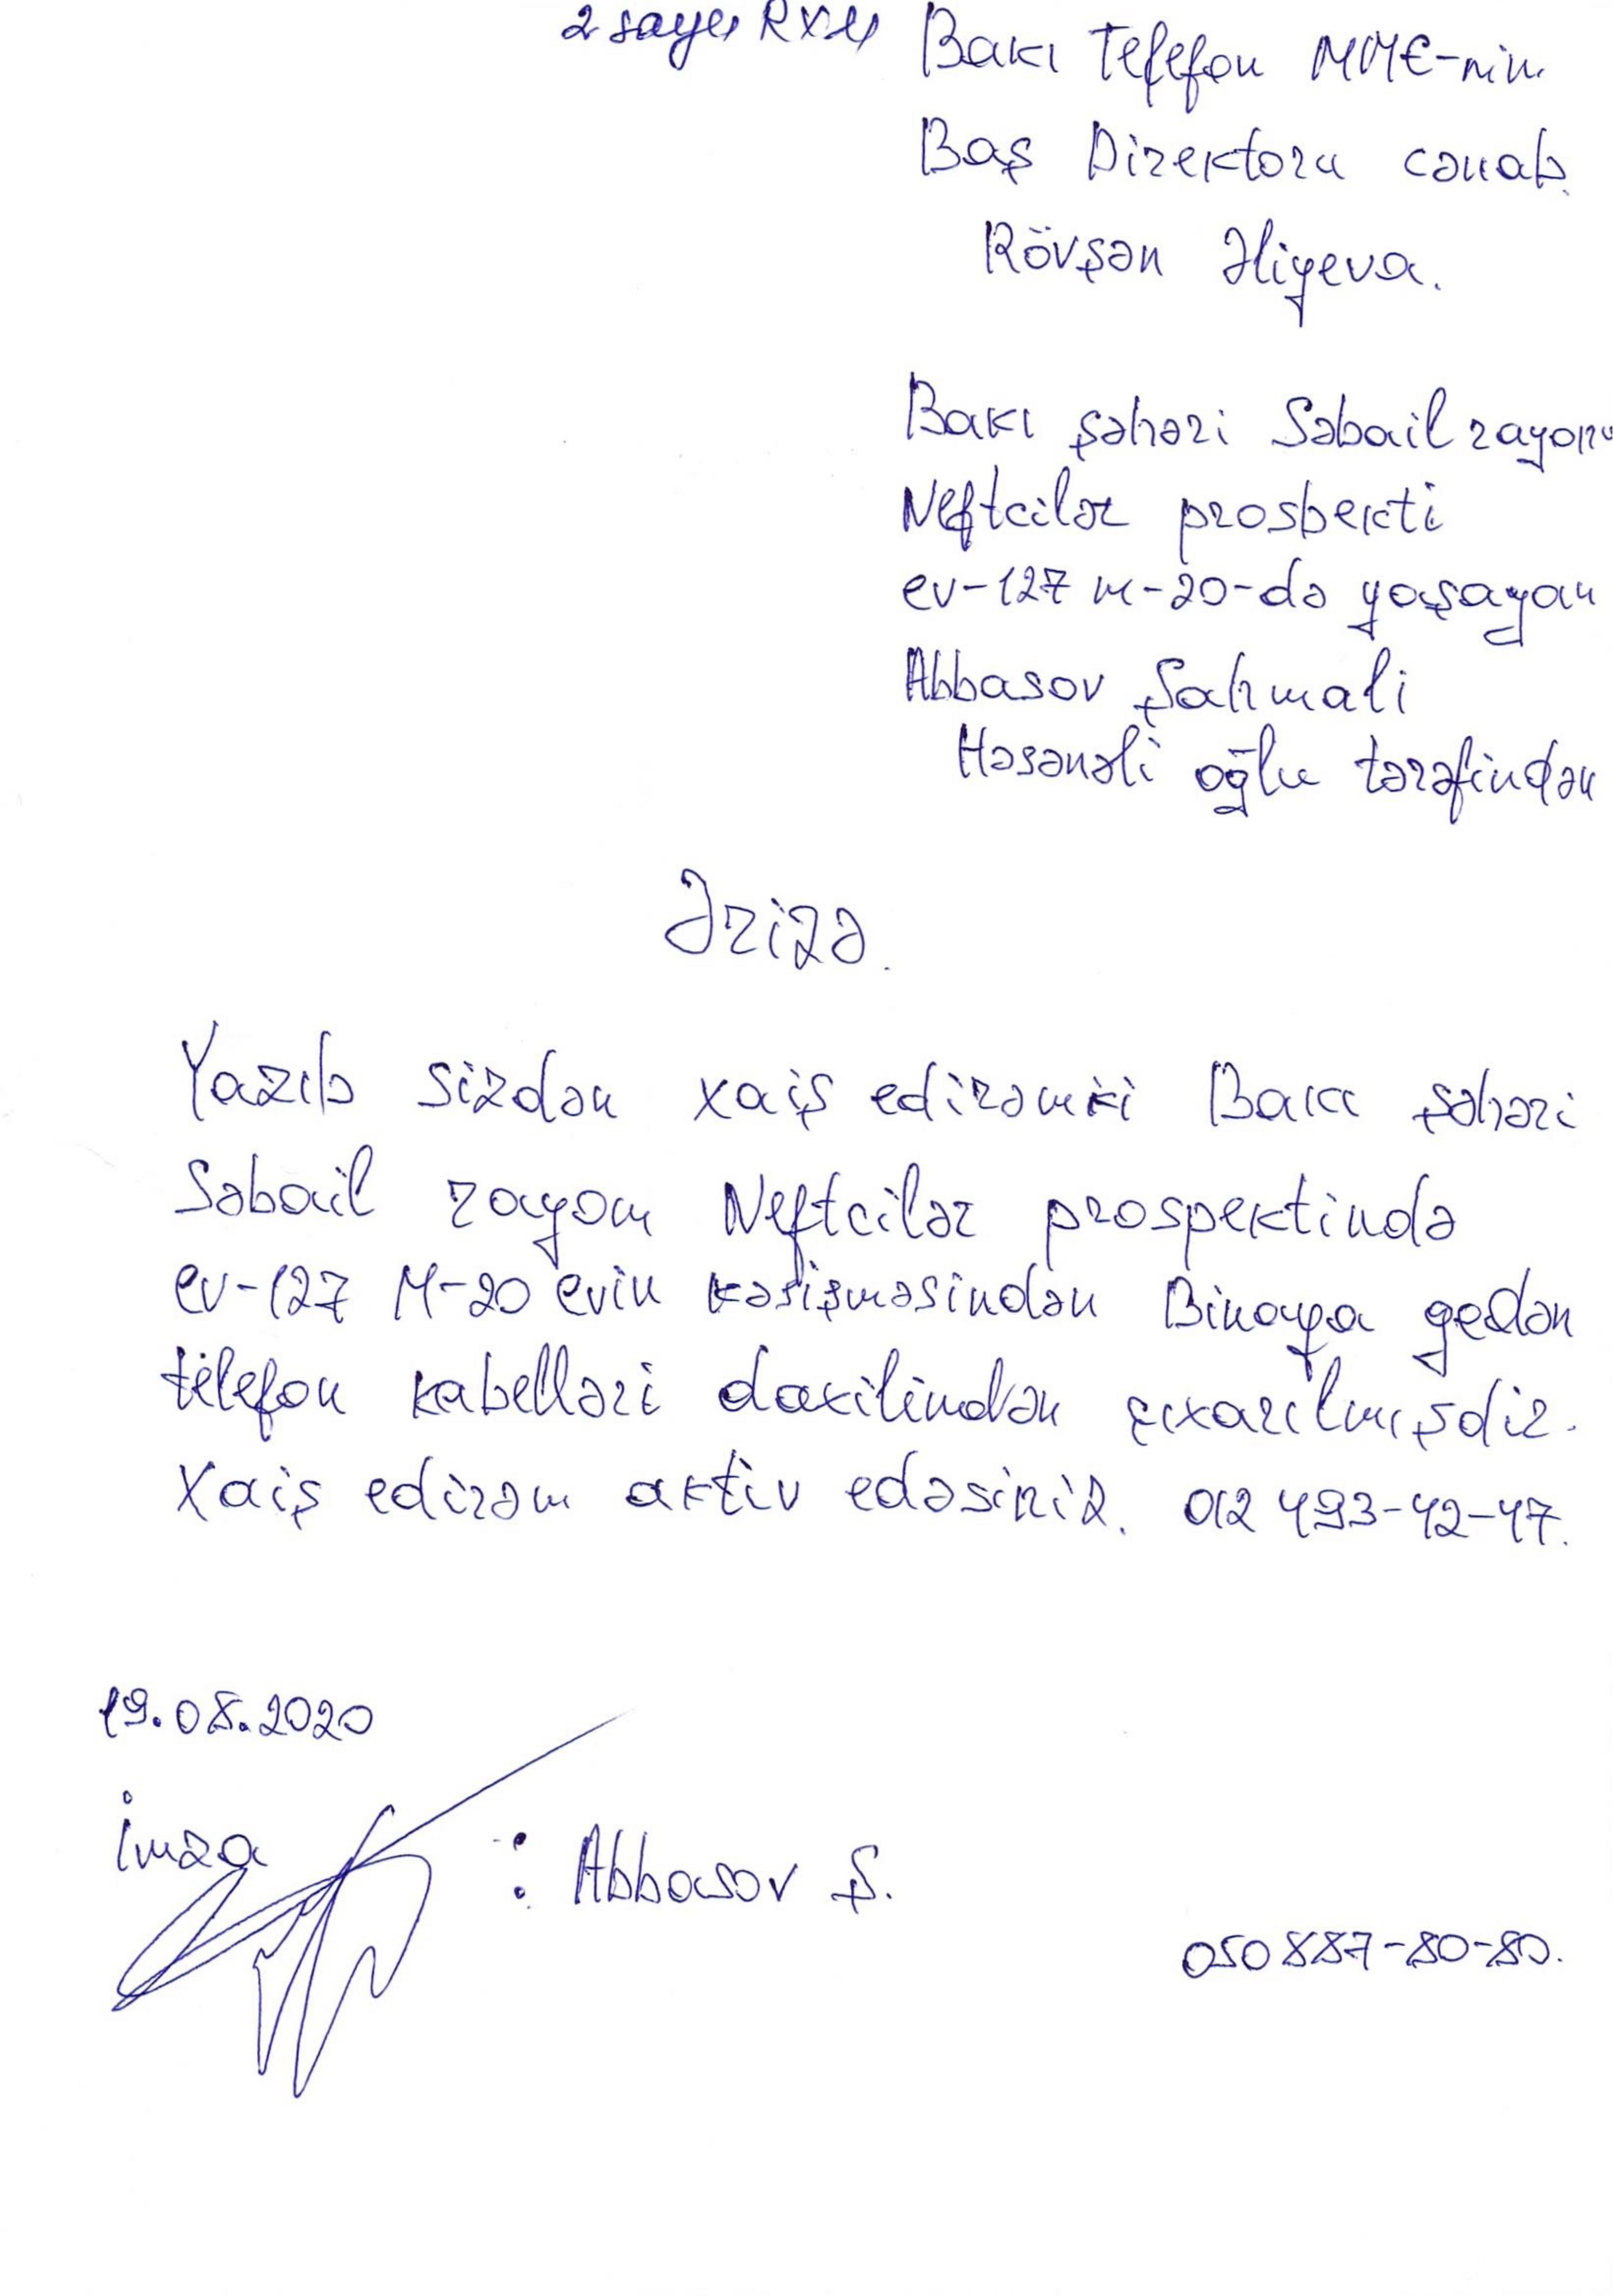 2 sayı RXŞ
Bakı Telefon MMC-nin
Baş Direktoru cənab
Rövşən Əliyeva.
Bakı şəhəri Səbail rayonu
Neftcilər prosbekti
ev-127 m-20-də yaşayan
Abbasov Şahmali
Həsənəli oğlu tərəfindən
Ərizə.
Yazıb sizdən xaiş edirəmki Bakı şəhəri
Səbail rayonu Neftcilər prospektində
ev-127 M-20 evin kəsişməsindən Binaya gedən
telefon kabelləri daxilindən çıxarılmışdir.
Xaiş edirəm aktiv edəsiniz. 012 493-42-47.
19.08.2020
İmza : Abbasov Ş.
050 887-80-80.